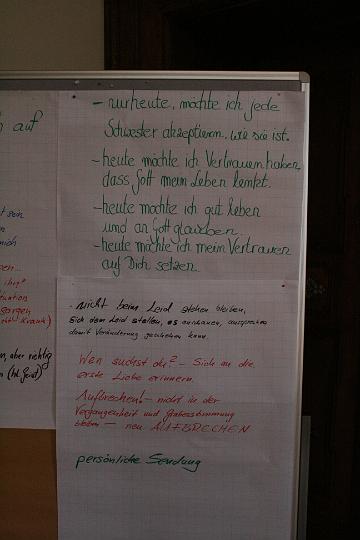 h auf
- nur heute, möchte ich jede
Schwester akzeptieren, wie sie ist.
- heute möchte ich Vertrauen haben,
dass Gott mein Leben lenket.
- heute möchte ich gut leben
und an Gott glauben.
- heute möchte ich mein Vertrauen
auf Dich setzen.
- nicht beim Leid stehen bleiben,
sich dem Leid stellen, es anschauen, aussprechen
damit Veränderung geschehen kann
Wen suchst du? - Sich an die
erste Liebe erinnern.
Aufbrechen! - nicht in der
Vergangenheit und Grabesstimmung
bleiben - neu AUFBRECHEN
persönliche Sendung
sein
mich
ihn?
tuation
sorgen
Krank)
n, aber richtig
n (hl. Geist)